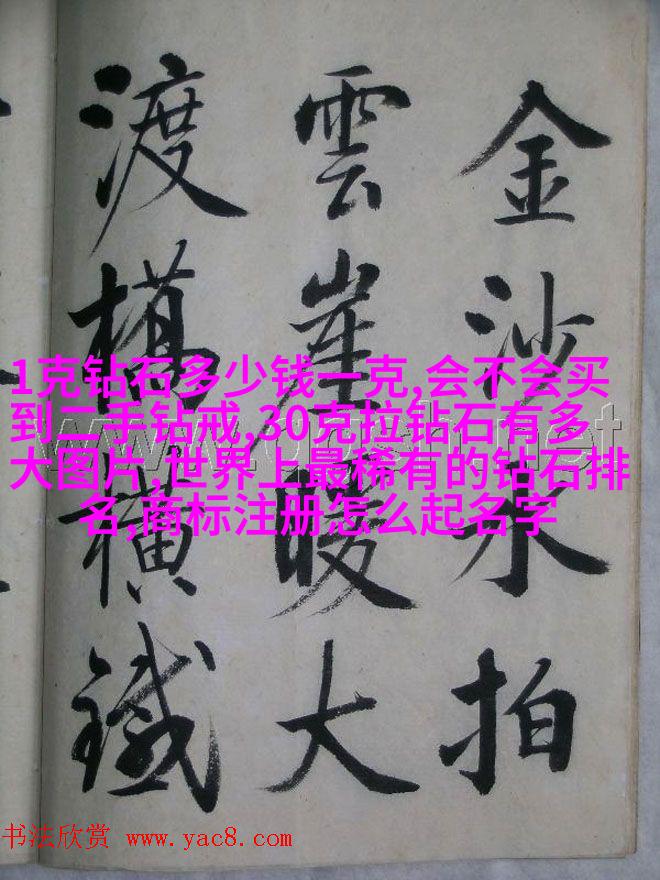 金沙水拍
雲崖暖大
渡橋横鐵
1克钻石多少钱一克,会不会买
到二手钻戒,30克拉钻石有多
大图片,世界上最稀有的钻石排
名,商标注册怎么起名字
书法欣赏 www.yac8.com